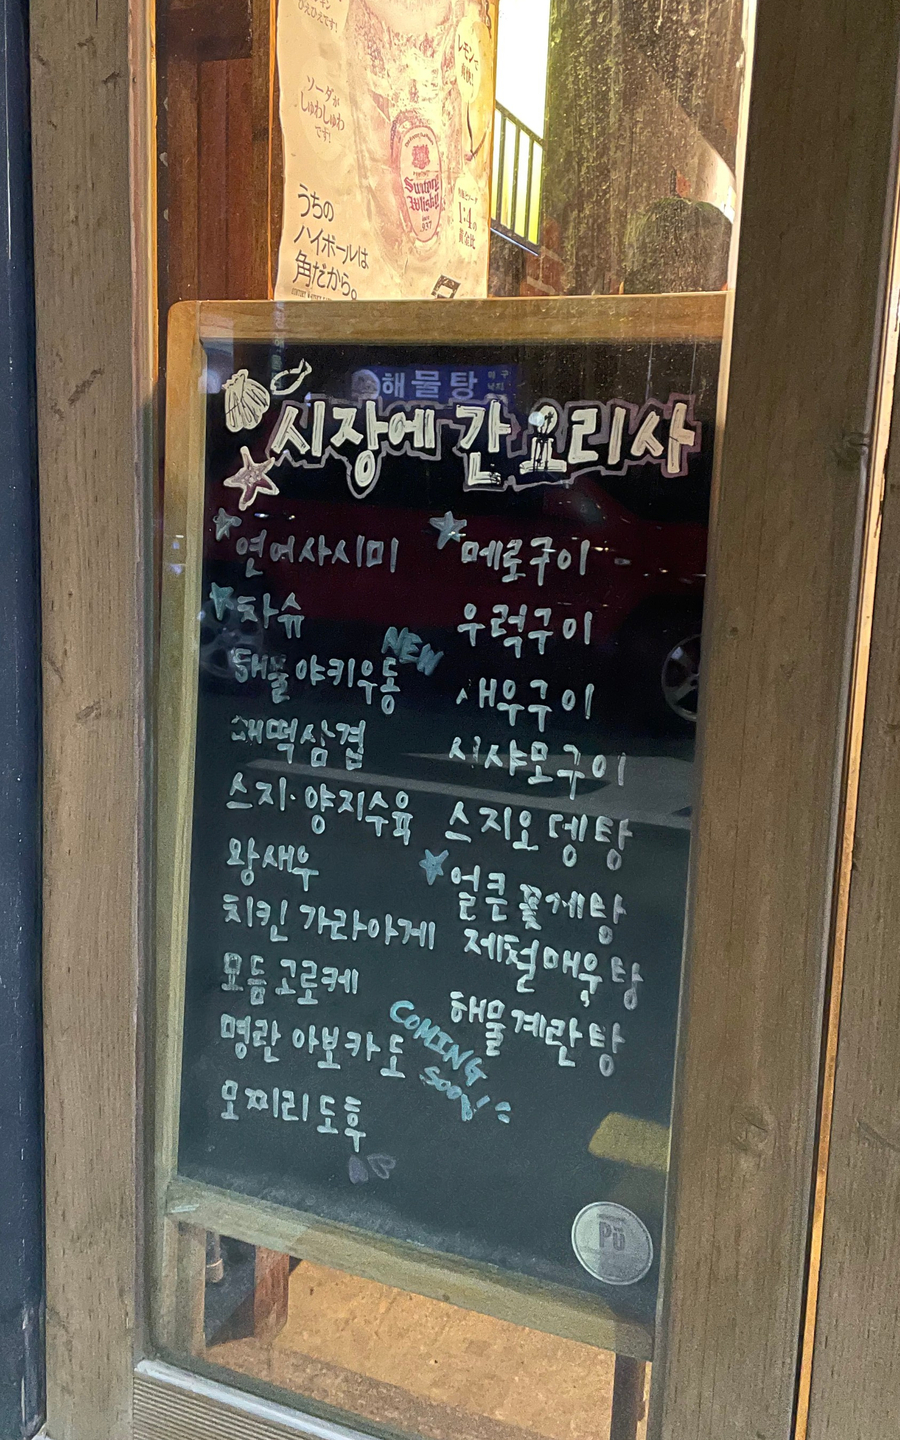 ひえひえです!
レモンで
ソーダが
しゅわしゅわ
です!
Suntory
Whisky
1:4の
黄金比
1937
うちの
ハイボールは
角だから。
해물탕
시장에 간 요리사
연어사시미
차슈
해물야키우동
NEW
스지·양지수육
왕새우
치킨 가라아게
모듬고로케
명란 아보카도
모찌리도후
메로구이
우럭구이
새우구이
시샤모구이
스지오뎅탕
얼큰꽃게탕
제철매운탕
해물계란탕
COMING
SOON!
Pū